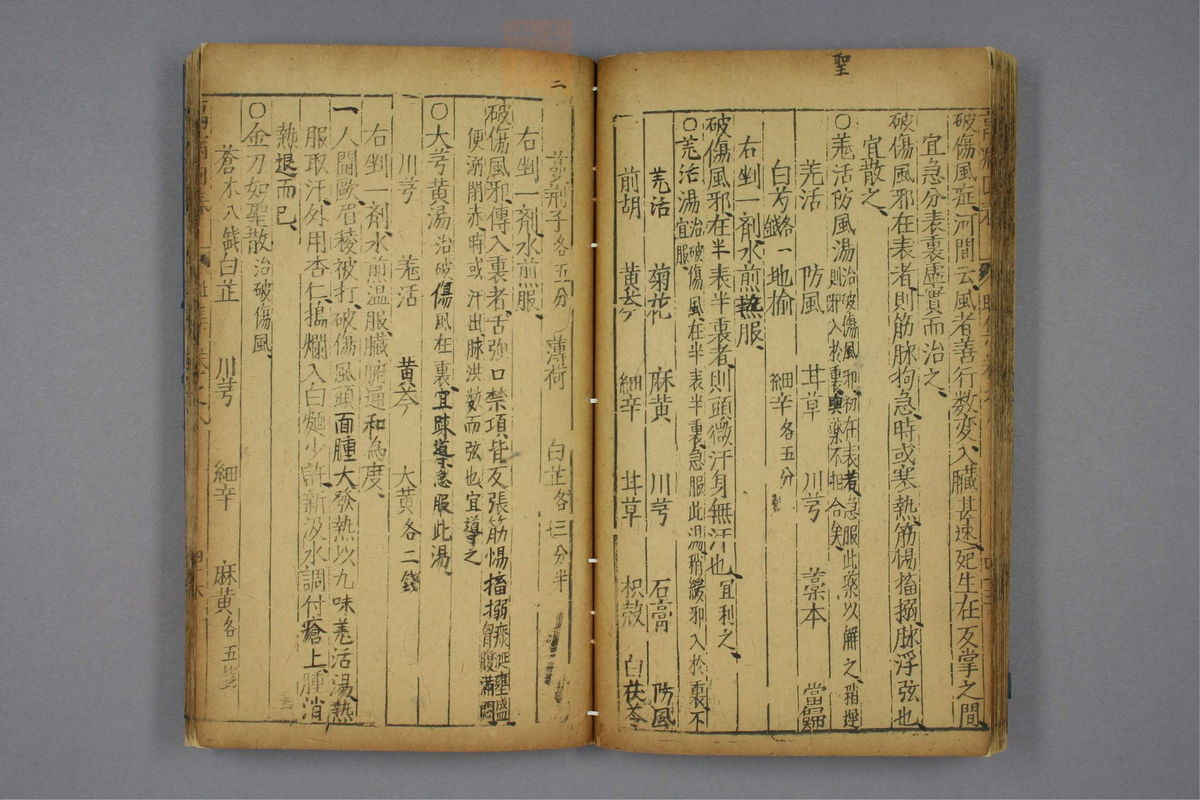 聖
破傷風症河間云風者善行数変入臟甚速死生在反掌之間
宜急分表裏虛實而治之
破傷風邪在表者則筋脉拘急時或寒熱筋惕搐搦脉浮弦也
宜散之
○羗活防風湯治破傷風邪初在表者急服此藥以解之稍遲
則邪入於裏與藥不相合矣
羗活 防風 甘草 川芎 藁本 當歸
白芍各一錢 地榆 細辛各五分
右剉一剤水煎熱服
破傷風邪在半表半裏者則頭微汗身無汗也宜利之
○羗活湯治破傷風在半表半裏急服此湯稍緩邪入於裏不
宜服
羗活 菊花 麻黄 川芎 石膏 防風
前胡 黄芩 細辛 甘草 枳殼 白茯苓
二
蔓荊子各五分 薄荷 白芷各二分半
右剉一剤水煎服
破傷風邪傳入裏者舌強口禁項背反張筋惕搐搦痰涎壅盛胷腹滿悶
便溺閉赤時或汗出脉洪数而弦也宜導之
○大芎黄湯治破傷風在裏宜踈導急服此湯
川芎 羗活 黄芩 大黄各二錢
右剉一剤水煎温服臟腑通和為度
一人閗歐眉稜被打破傷風頭面腫大發熱以九味羗活湯熱
服取汗外用杏仁搗爛入白麵少許新汲水調付瘡上腫消
熱退而已
○金刀如聖散治破傷風
蒼术八錢 白芷 川芎 細辛 麻黄各五錢